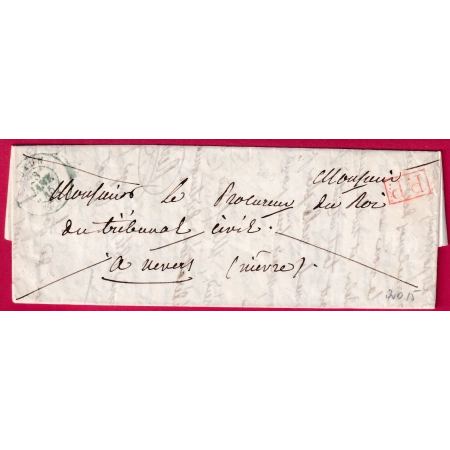 Monsieur
Monsieur Le Procureur du Roi
du tribunal civil.
a nevers (nièvre).
P.P.
2015